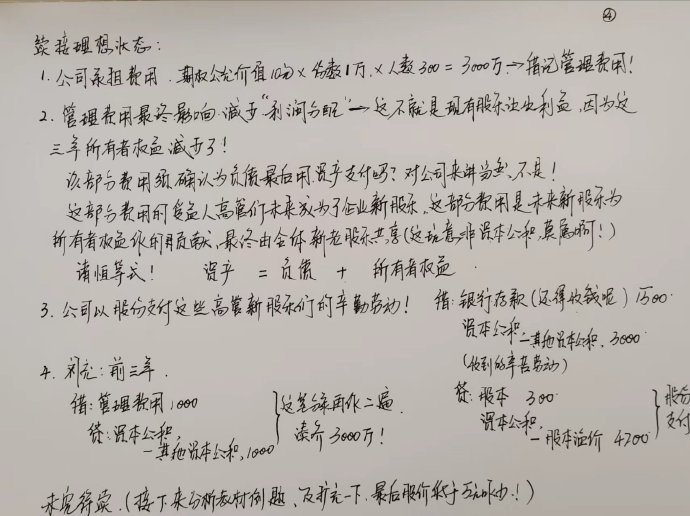 ④
续接理想状态：
1. 公司承担费用. 期权公允价值10元×份数1万×人数300=3000万→借记管理费用！
2. 管理费用最终影响减少"利润分配"—这不就是现有股东让出利益，因为这
三年所有者权益减少了！
该部分费用须确认为负债最后用资产支付吗？对公司来讲当然不是！
这部分费用的受益人高管们未来成为了企业新股东，这部分费用是未来新股东为
所有者权益作的贡献，最终由全体新老股东共享（这玩意非资本公积莫属啊！）
请恒等式！ 资产 = 负债 + 所有者权益
3. 公司以股份支付这些高管新股东们的辛勤劳动！
借：银行存款（还得收钱呢）1500
资本公积—其他资本公积 3000
（收到的辛苦劳动）
贷：股本 300
资本公积—股本溢价 4200
股份
支付
4. 补充：前三年.
借：管理费用1000
贷：资本公积—其他资本公积 1000
这笔分录再作二遍
凑齐3000万！
未完待续.（接下来分析教材例题，及扩充一下，最后股价低于5元咋办！）